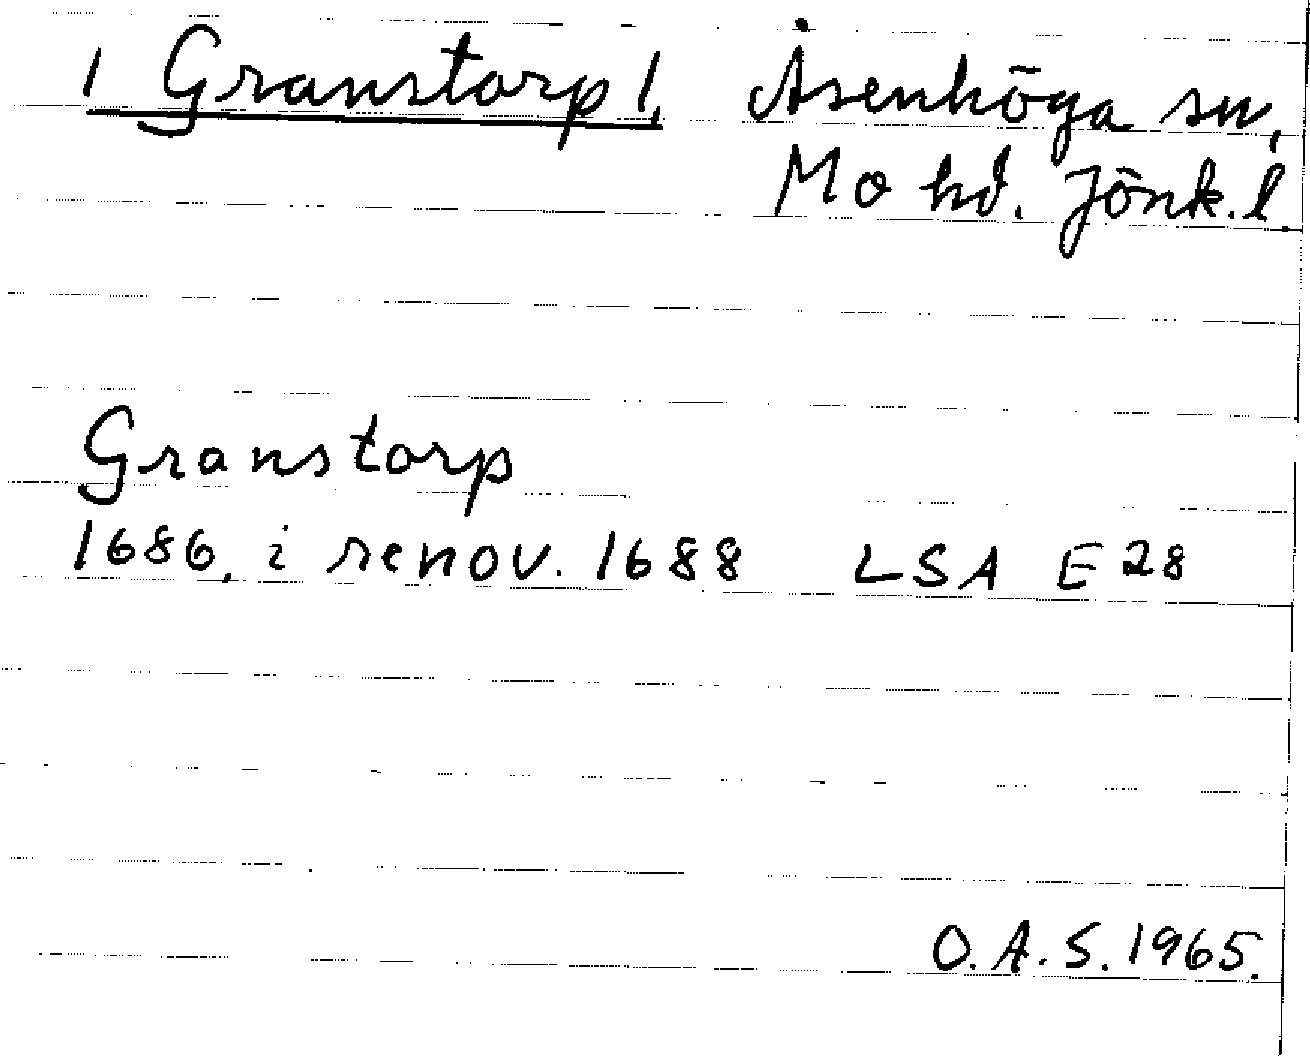 / Granstorp /, Åsenhöga sn,
Mo hd. Jönk. l
Granstorp
1686, i renov. 1688 LSA E 28
O.A.S. 1965.